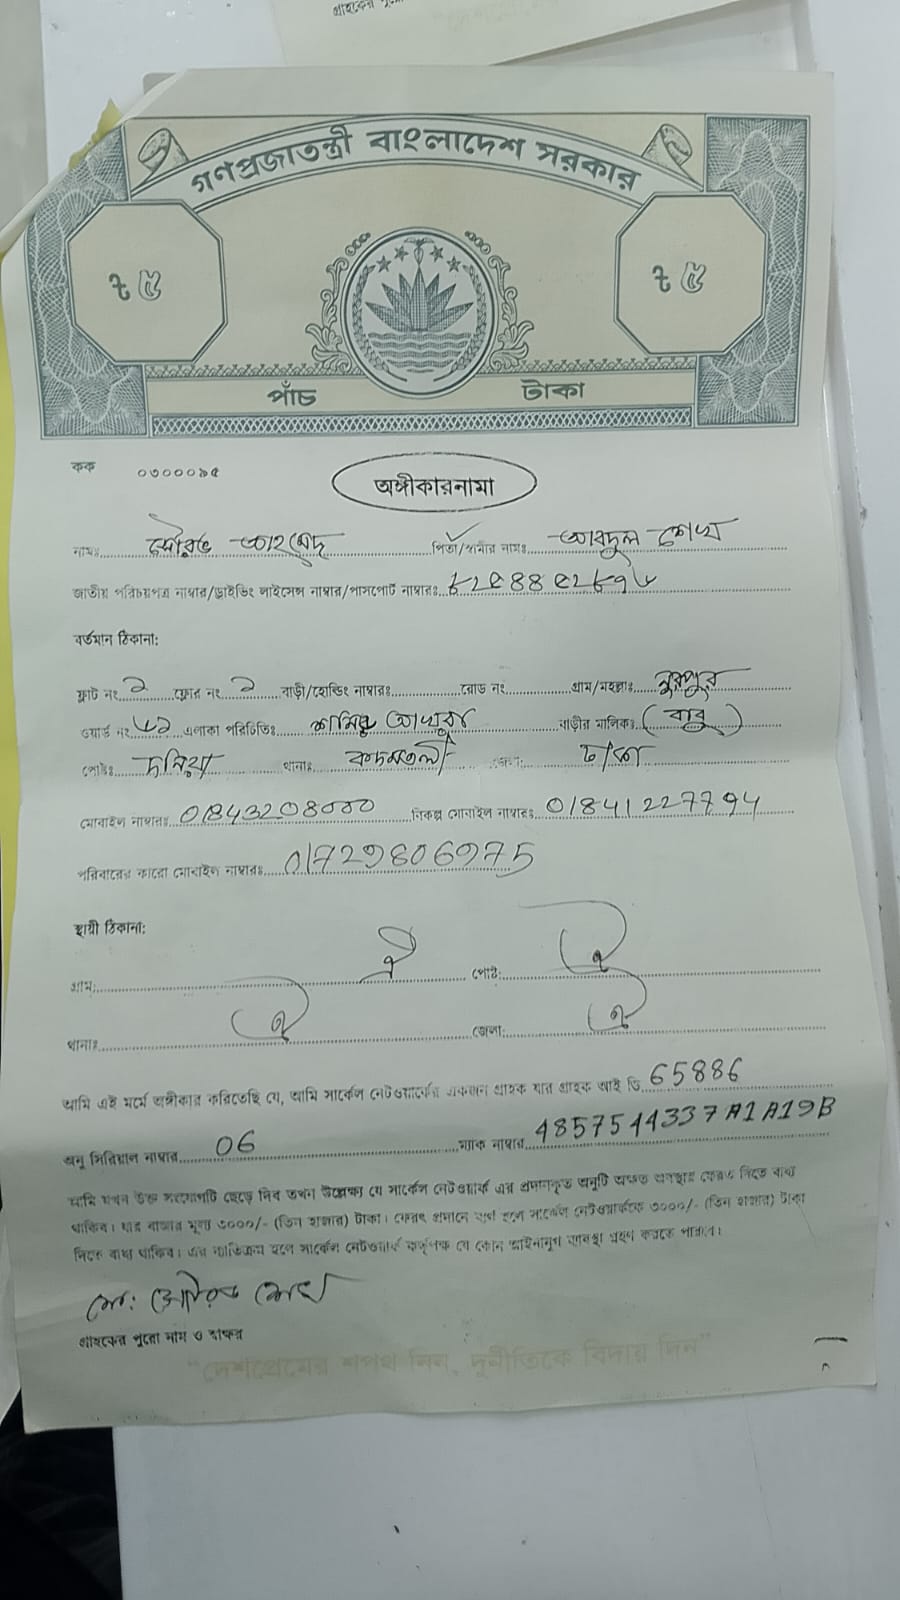 গ্রাহকের
গণপ্রজাতন্ত্রী বাংলাদেশ সরকার
৳ ৫ ৳ ৫
পাঁচ টাকা
কক ০৩০০০৯৫
অঙ্গীকারনামা
নামঃ সৌরভ আহমেদ পিতা/স্বামীর নামঃ আবদুল শেখ
জাতীয় পরিচয়পত্র নাম্বার/ড্রাইভিং লাইসেন্স নাম্বার/পাসপোর্ট নাম্বারঃ
বর্তমান ঠিকানা:
ফ্লাট নং ২ ফ্লোর নং ২ বাড়ী/হোল্ডিং নাম্বারঃ রোড নং গ্রাম/মহল্লাঃ নুরপুর
ওয়ার্ড নং ৬১ এলাকা পরিচিতিঃ বাড়ীর মালিকঃ (বাবু)
পোষ্টঃ দনিয়া থানাঃ কদমতলী জেলা: ঢাকা
মোবাইল নাম্বারঃ 01843208000 বিকল্প মোবাইল নাম্বারঃ 01841227794
পরিবারের কারো মোবাইল নাম্বারঃ 01729806975
স্থায়ী ঠিকানা:
গ্রাম: ঐ পোষ্ট: ঐ
থানাঃ ঐ জেলা: ঐ
আমি এই মর্মে অঙ্গীকার করিতেছি যে, আমি সার্কেল নেটওয়ার্কের একজন গ্রাহক যার গ্রাহক আই ডি 65886
অনু সিরিয়াল নাম্বার 06 ম্যাক নাম্বার 4857544337A1A19B
আমি যখন উক্ত সংযোগটি ছেড়ে দিব তখন উল্লেক্ষ্য যে সার্কেল নেটওয়ার্ক এর প্রদানকৃত অনুটি অক্ষত অবস্থায় ফেরত দিতে বাধ্য
থাকিব। যার বাজার মূল্য ৩০০০/- (তিন হাজার) টাকা। ফেরৎ প্রদানে ব্যর্থ হলে সার্কেল নেটওয়ার্ককে ৩০০০/- (তিন হাজার) টাকা
দিতে বাধ্য থাকিব। এর ব্যতিক্রম হলে সার্কেল নেটওয়ার্ক কর্তৃপক্ষ যে কোন আইনানুগ ব্যবস্থা গ্রহণ করতে পারবে।
মো: সৌরভ শেখ
গ্রাহকের পুরো নাম ও স্বাক্ষর
"দেশপ্রেমের শপথ নিন, দুর্নীতিকে বিদায় দিন"